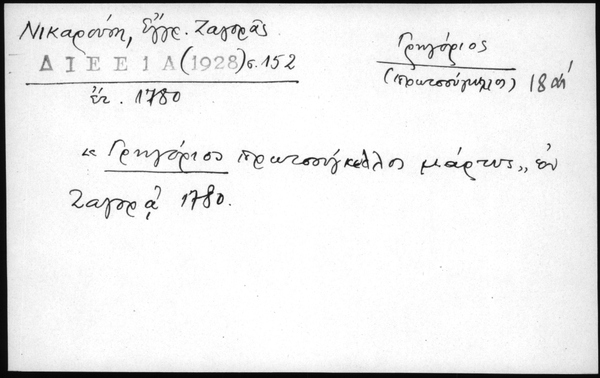 Νικαρούση, Ἔγγρ. Ζαγορᾶς
Δ Ι Ε Ε 1 Α (1928) σ. 152
ἔτ. 1780
Γρηγόριος
(πρωτοσύγκελλος) 18 αἰ
« Γρηγόριος πρωτοσύγκελλος μάρτυς „ ἐν
Ζαγορᾷ 1780.